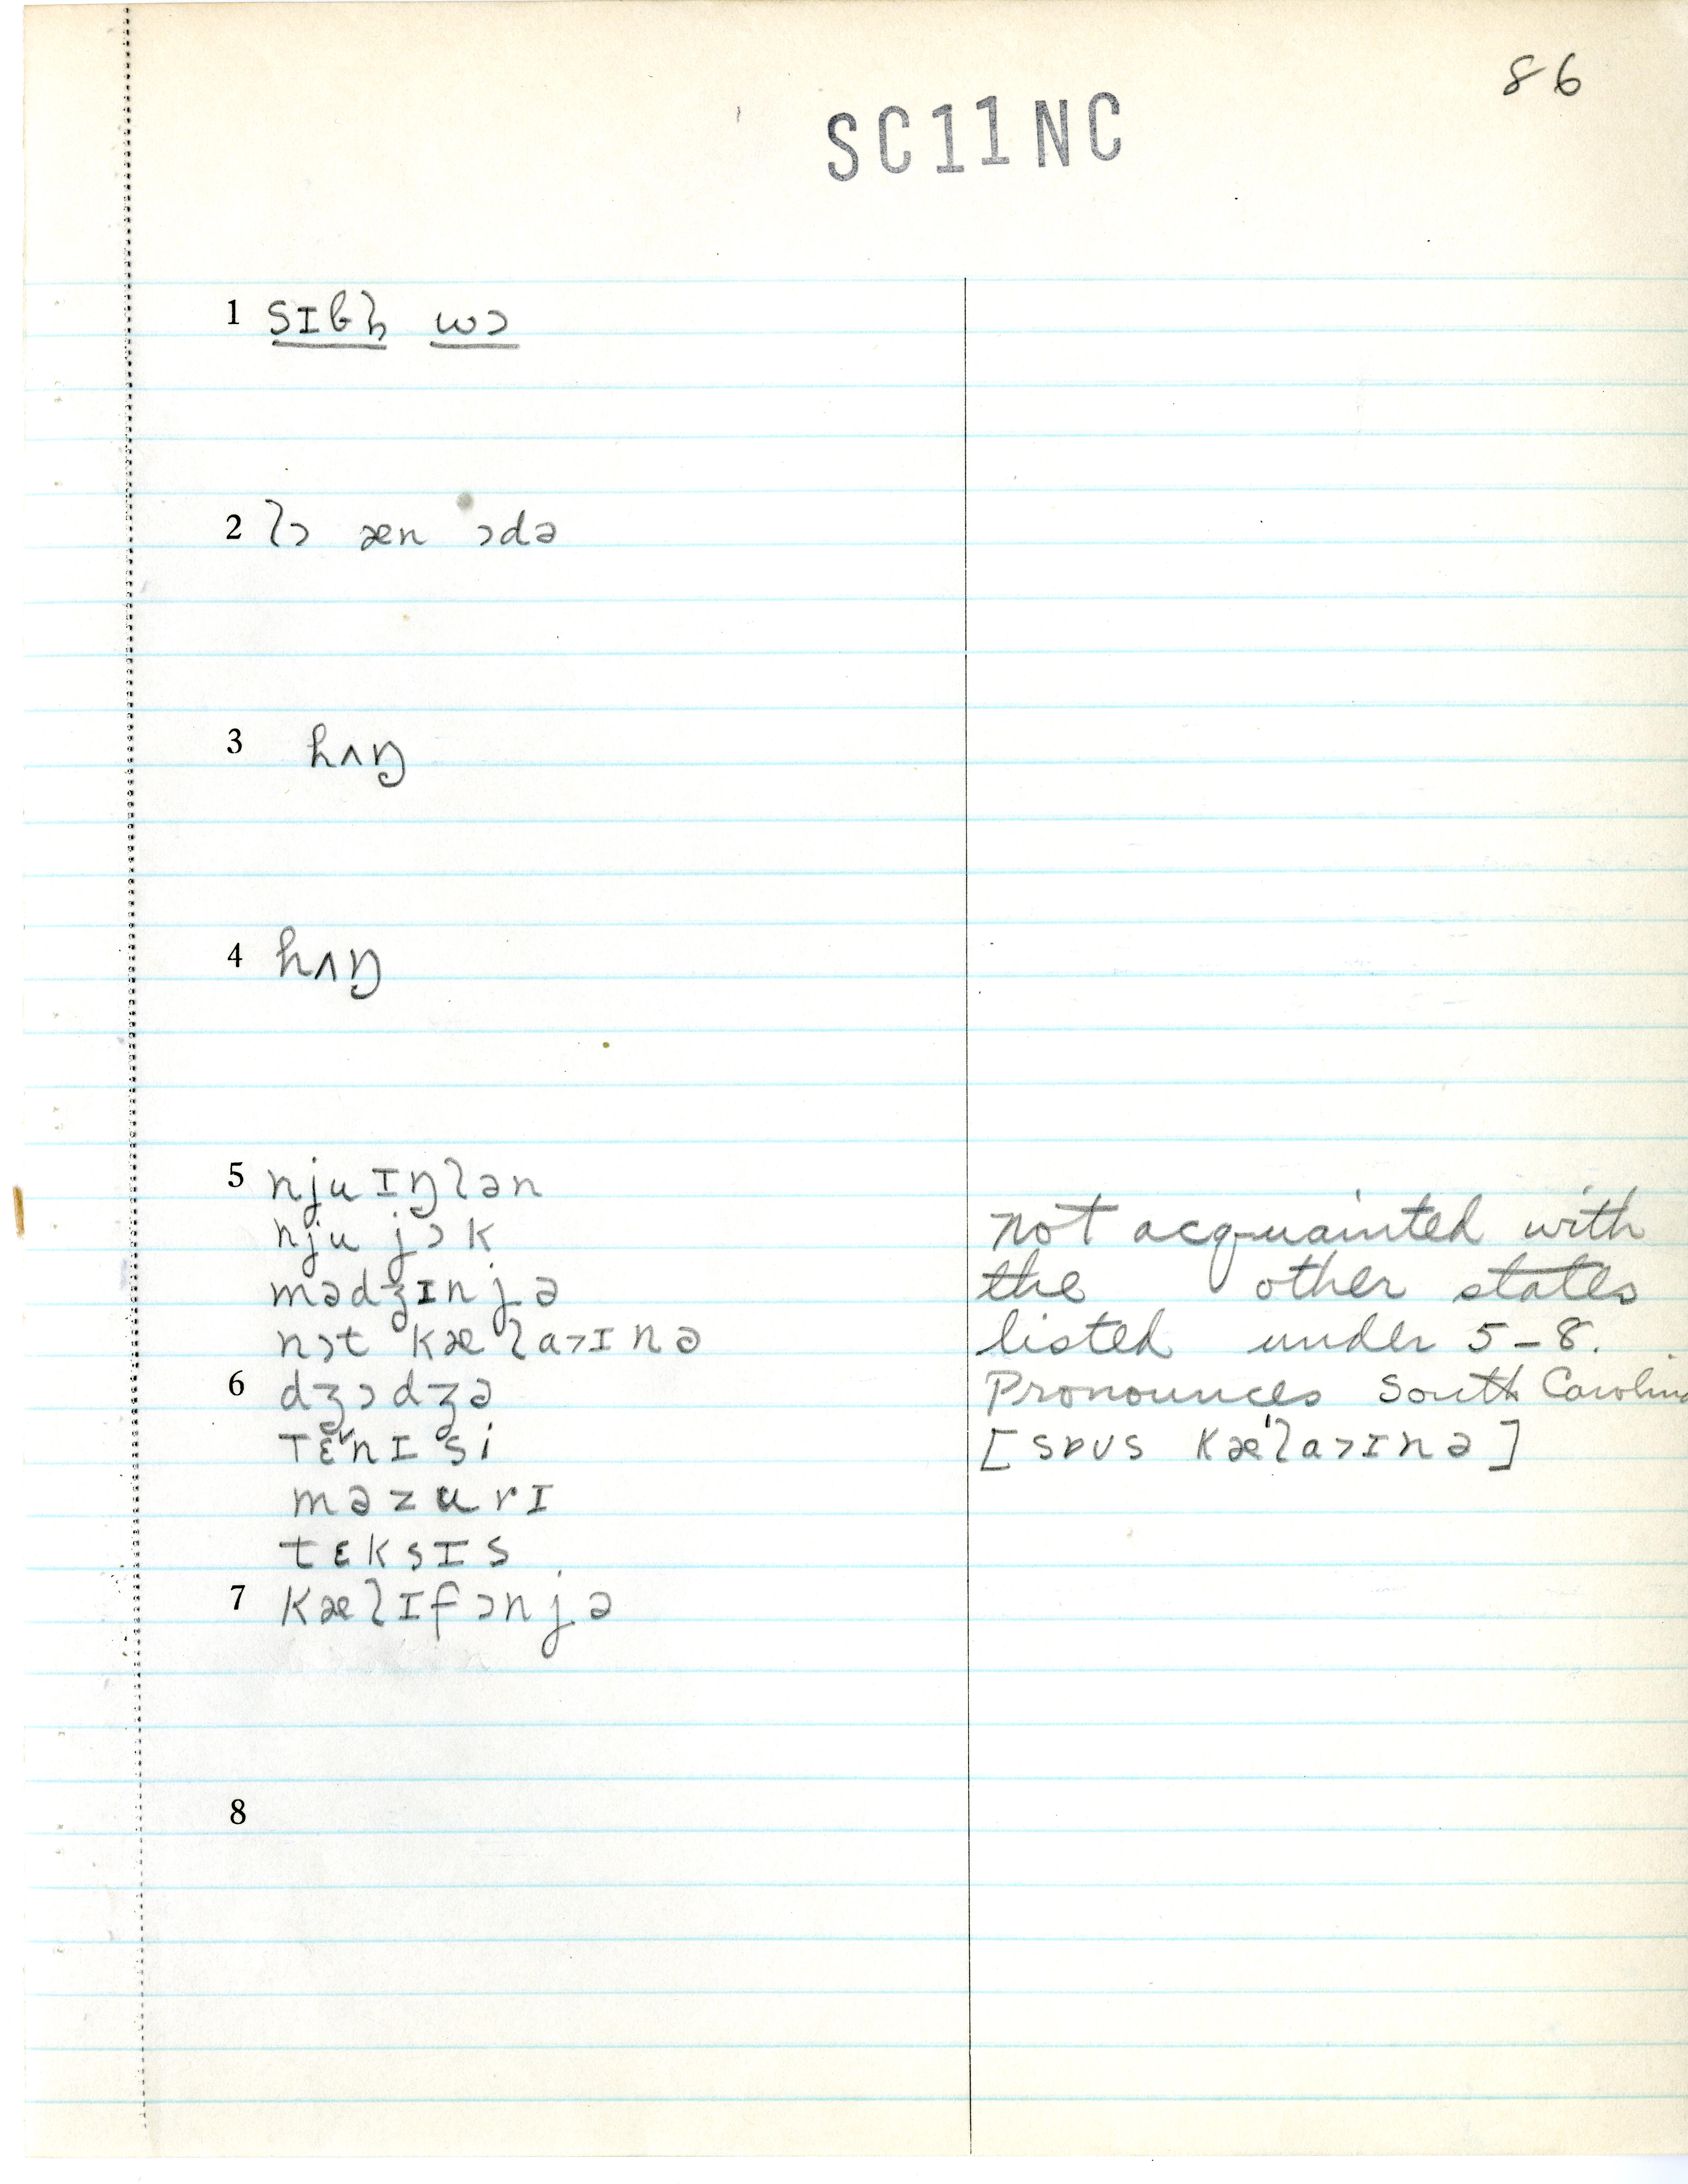 86
SC11NC
1 sɪbl̩ wɔ
2 lɔ æn ɔdə
3 hʌŋ
4 hʌŋ
5 nju ɪŋlən
nju jɔk
mədʒɪnjə
nɔt kælaɪnə
6 dʒɔdʒə
tɛnɪsi
məzurɪ
tɛksɪs
7 kælɪfɔnjə
8
not acquainted with
the other states
listed under 5-8.
Pronounces South Carolina